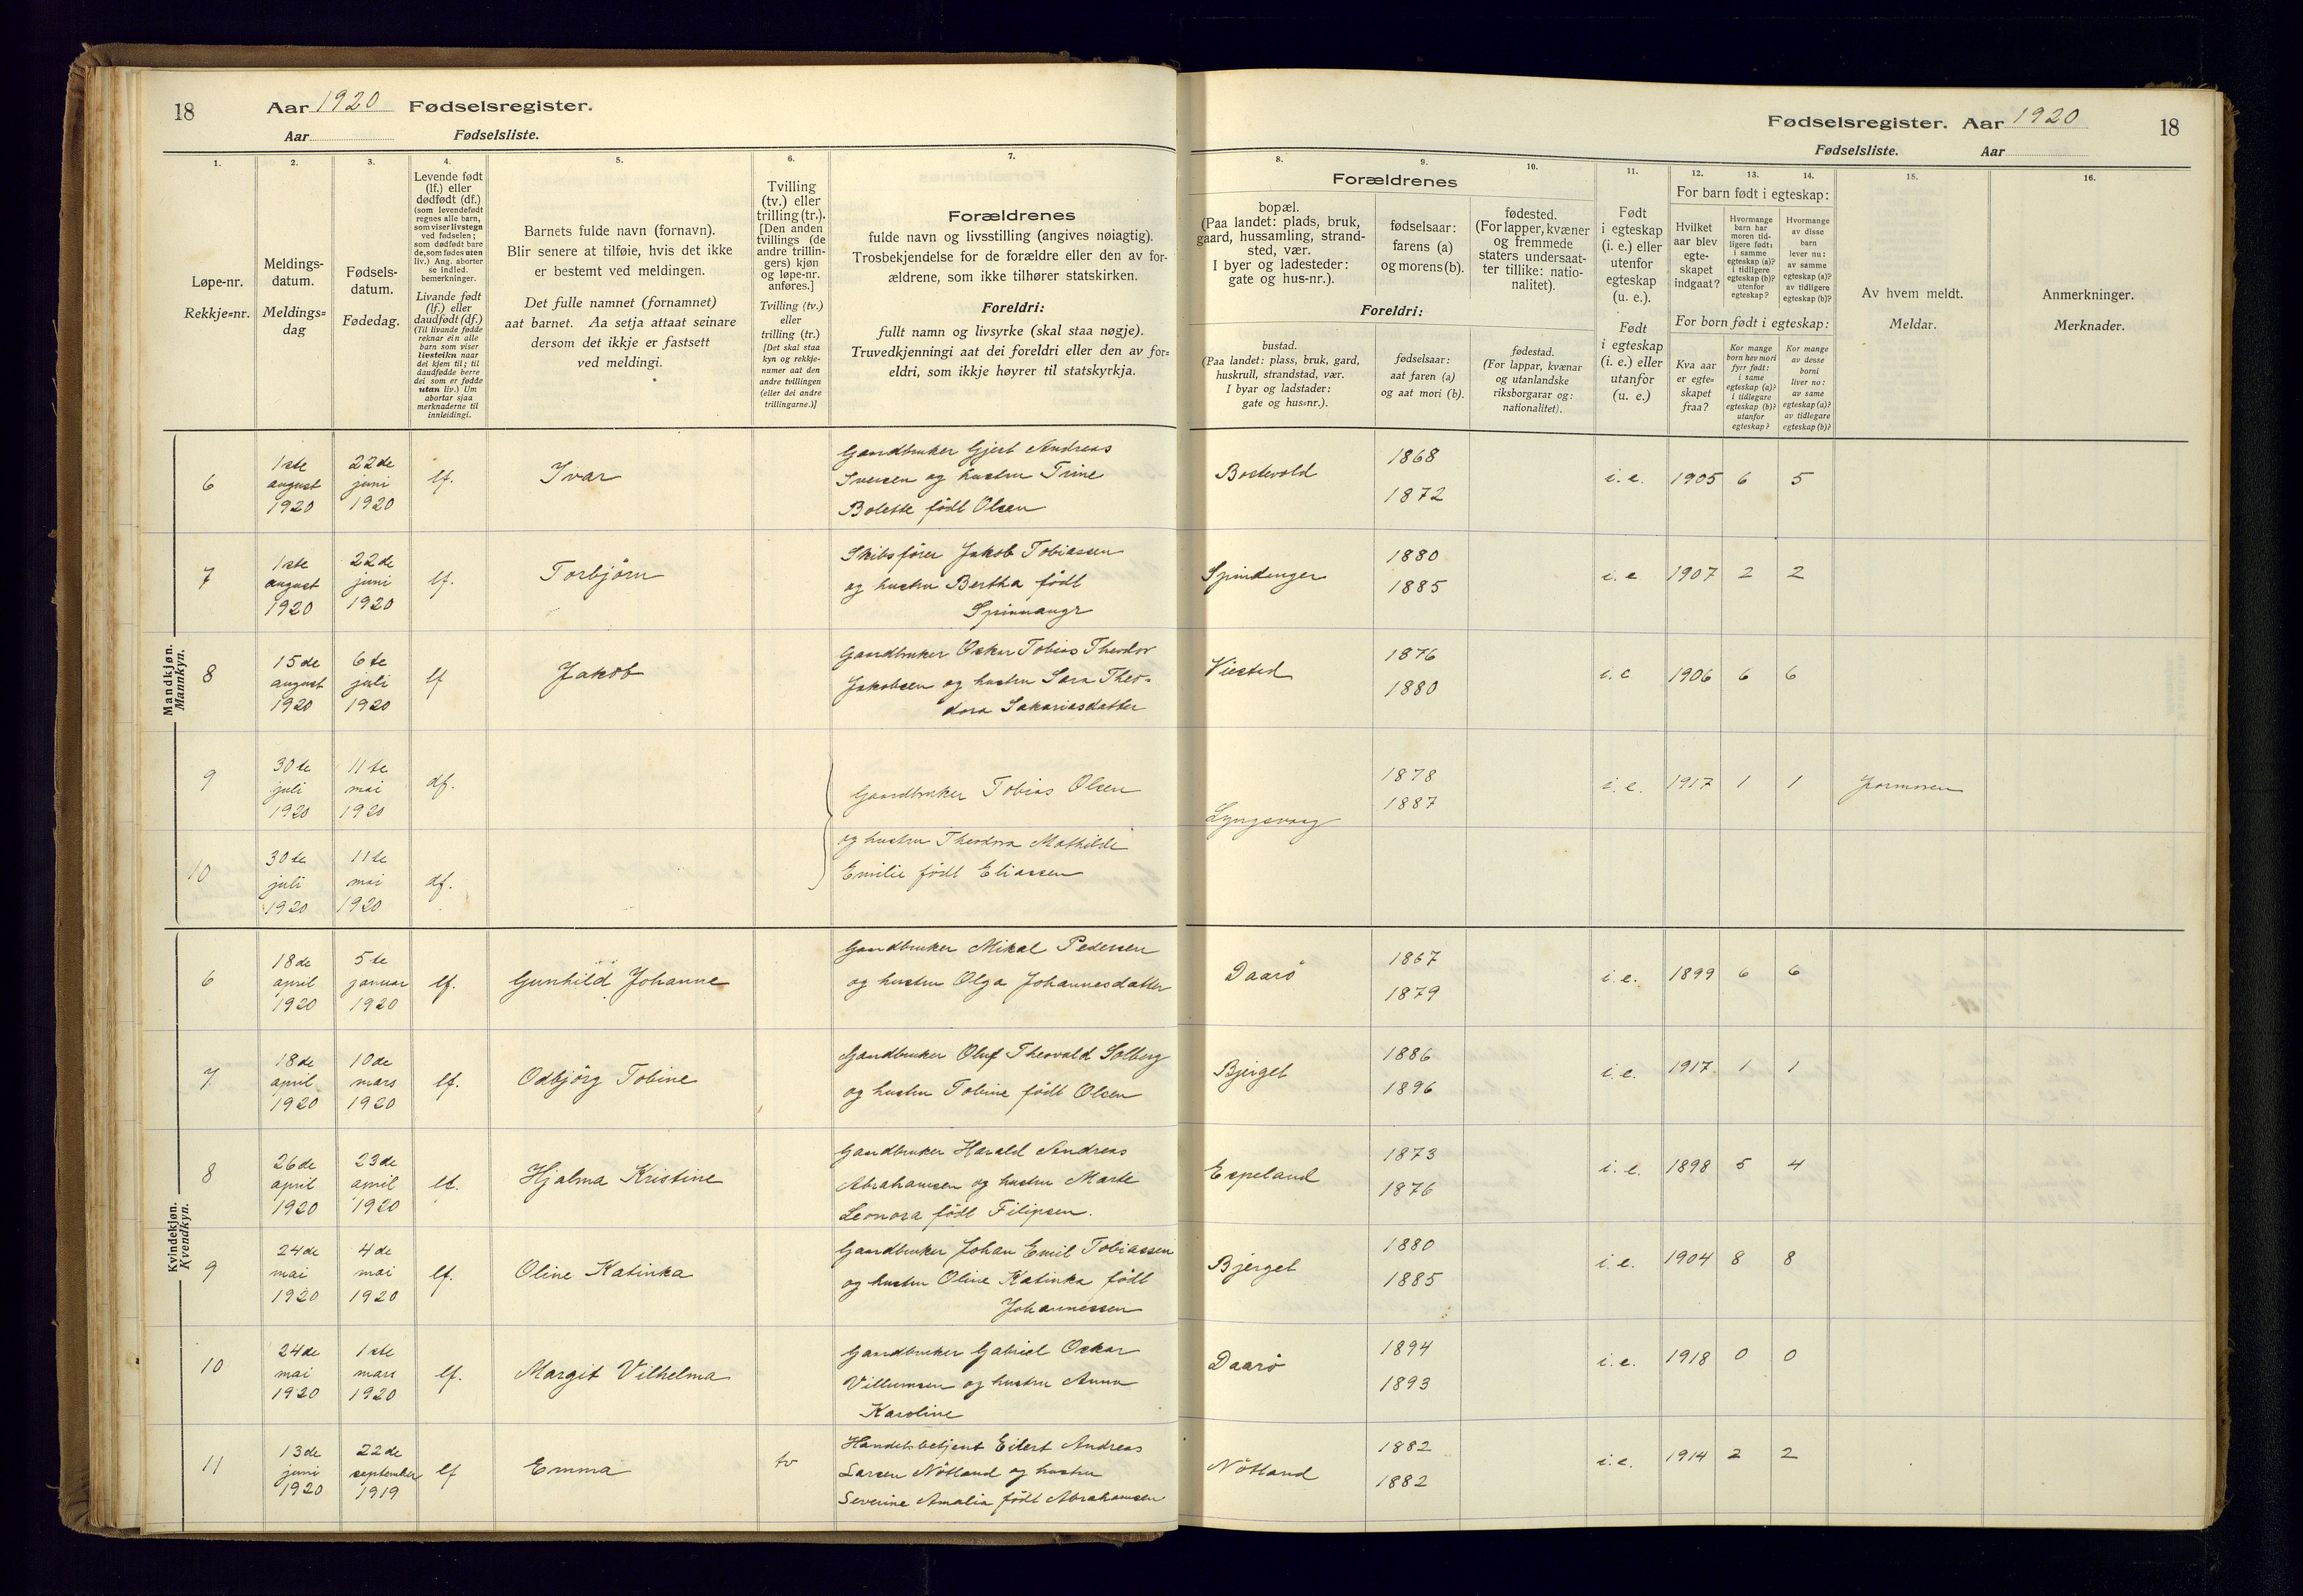 18
Aar 1920 Fødselsregister.
Aar Fødselsliste.
1.
2.
3.
4.
5.
6.
7.
Løpe-nr.
Rekkje=nr.
Meldings-
datum.
Meldings=
dag
Fødsels-
datum.
Fødedag.
Levende født
(lf.) eller
dødfødt (df.)
(som levendefødt
regnes alle barn,
som viser livstegn
ved fødselen;
som dødfødt bare
de, som fødes uten
liv.) Ang. aborter
se indled.
bemerkninger.
Livande født
(lf.) eller
daudfødt (df.)
(Til livande fødde
reknar ein alle
barn som viser
livsteikn naar
dei kjem til; til
daudfødde berre
dei som er fødde
utan liv.) Um
abortar sjaa
merknaderne til
innleidingi.
Barnets fulde navn (fornavn).
Blir senere at tilføie, hvis det ikke
er bestemt ved meldingen.
Det fulle namnet (fornamnet)
aat barnet. Aa setja attaat seinare
dersom det ikkje er fastsett
ved meldingi.
Tvilling
(tv.) eller
trilling (tr.).
[Den anden
tvillings (de
andre trillin-
gers) kjøn
og løpe-nr.
anføres.]
Tvilling (tv.)
eller
trilling (tr.)
[Det skal staa
kyn og rekkje-
numer aat den
andre tvillingen
(eller dei andre
trillingarne.)]
Forældrenes
fulde navn og livsstilling (angives nøiagtig).
Trosbekjendelse for de forældre eller den av for-
ældrene, som ikke tilhører statskirken.
Foreldri:
fullt namn og livsyrke (skal staa nøgje).
Truvedkjenningi aat dei foreldri eller den av for=
eldri, som ikkje høyrer til statskyrkja.
Mandkjøn.
Mannkyn.
6
1ste
august
1920
22de
juni
1920
lf.
Ivar
Gaardbruker Gjert Andreas
Iversen og hustru Trine
Bolette født Olsen
7
1ste
august
1920
22de
juni
1920
lf.
Torbjörn
Skibsfører Jakob Tobiassen
og hustru Bertha født
Spinnangr
8
15de
august
1920
6te
juli
1920
lf
Jakob
Gaardbruker Oskar Tobias Theodor
Jakobsen og hustru Sara Theo-
dora Sakariasdatter
9
30te
juli
1920
11te
mai
1920
df.
Gaardbruker Tobias Olsen
10
30te
juli
1920
11te
mai
1920
df.
og hustru Theodora Mathilde
Emilie født Eliassen
Kvindekjøn.
Kvendkyn.
6
18de
april
1920
5te
januar
1920
lf.
Gunhild Johanne
Gaardbruker Mikal Pedersen
og hustru Olga Johannesdatter
7
18de
april
1920
10de
mars
1920
lf.
Odbjörg Tobine
Gaardbruker Oluf Theovald Solberg
og hustru Tobine født Olsen
8
26de
april
1920
23de
april
1920
lf.
Hjalma Kristine
Gaardbruker Harald Andreas
Abrahamsen og hustru Marte
Leonora født Filipsen.
9
24de
mai
1920
4de
mai
1920
lf.
Oline Katinka
Gaardbruker Johan Emil Tobiassen
og hustru Oline Katinka født
Johannessen
10
24de
mai
1920
1ste
mars
1920
lf.
Margit Vilhelma
Gaardbruker Gabriel Oskar
Villumsen og hustru Anna
Karoline
11
13de
juni
1920
22de
september
1919
lf
Emma
tv
Handelsbetjent Eilert Andreas
Larsen Nötland og hustru
Severine Amalia født Abrahamsen
Fødselsregister. Aar 1920
18
Fødselsliste. Aar
8.
9.
10.
11.
12.
13.
14.
15.
16.
Forældrenes
bopæl.
(Paa landet: plads, bruk,
gaard, hussamling, strand-
sted, vær.
I byer og ladesteder:
gate og hus-nr.).
fødselsaar:
farens (a)
og morens (b).
fødested.
(For lapper, kvæner
og fremmede
staters undersaat-
ter tillike: natio-
nalitet).
Foreldri:
bustad.
(Paa landet: plass, bruk, gard,
huskrull, strandstad, vær.
I byar og ladstader:
gate og hus=nr.).
fødselsaar:
aat faren (a)
og aat mori (b).
fødestad.
(For lappar, kvænar
og utanlandske
riksborgarar og:
nationalitet).
Født
i egteskap
(i. e.) eller
utenfor
egteskap
(u. e.).
Født
i egteskap
(i. e.) eller
utanfor
(u. e.)
For barn født i egteskap:
Hvilket
aar blev
egte-
skapet
indgaat?
Hvormange
barn har
moren tid-
ligere født:
i samme
egteskap (a)?
i tidligere
egteskap (b)?
utenfor
egteskap?
Hvormange
av disse
barn
lever nu:
av samme
egteskap (a)?
av tidligere
egteskap (b)?
For born født i egteskap:
Kva aar
er egte=
skapet
fraa?
Kor mange
born hev mori
fyrr født:
i same
egteskap (a)?
i tidlegare
egteskap (b)?
utanfor
egteskap?
Kor mange
av desse
borni
liver no:
av same
egteskap (a)?
av tidlegare
egteskap (b)?
Av hvem meldt.
Meldar.
Anmerkninger.
Merknader.
Bostevold
1868
1872
i. e. 1905 6 5
Spindanger
1880
1885
i. e 1907 2 2
Viested
1876
1880
i. e 1906 6 6
Lyngsvaag
1878
1887
i. e. 1917 1 1 jormoren
Daarö
1867
1879
i. e. 1899 6 6
Bjerget
1886
1896
i. e. 1917 1 1
Espeland
1873
1876
i. e. 1898 5 4
Bjerget
1880
1885
i. e. 1904 8 8
Daarö
1894
1893
i. e. 1918 0 0
Nötland
1882
1882
i. e. 1914 2 2